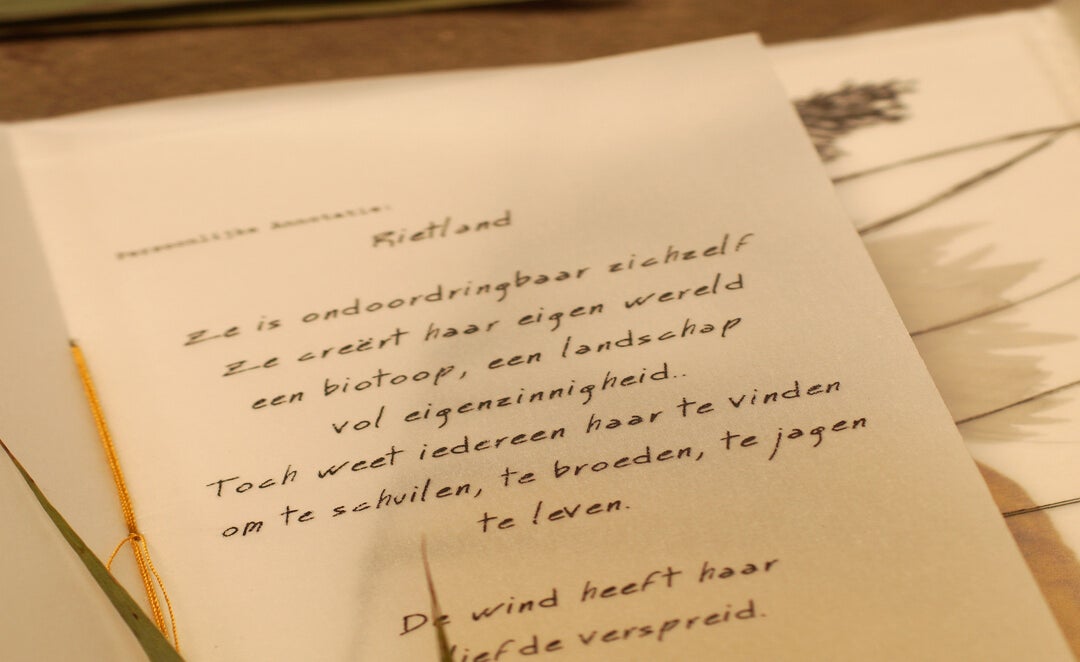 Persoonlijke Annotatie:
Rietland
Ze is ondoordringbaar zichzelf
Ze creërt haar eigen wereld
een biotoop, een landschap
vol eigenzinnigheid..
Toch weet iedereen haar te vinden
om te schuilen, te broeden, te jagen
te leven.
De wind heeft haar
liefde verspreid.